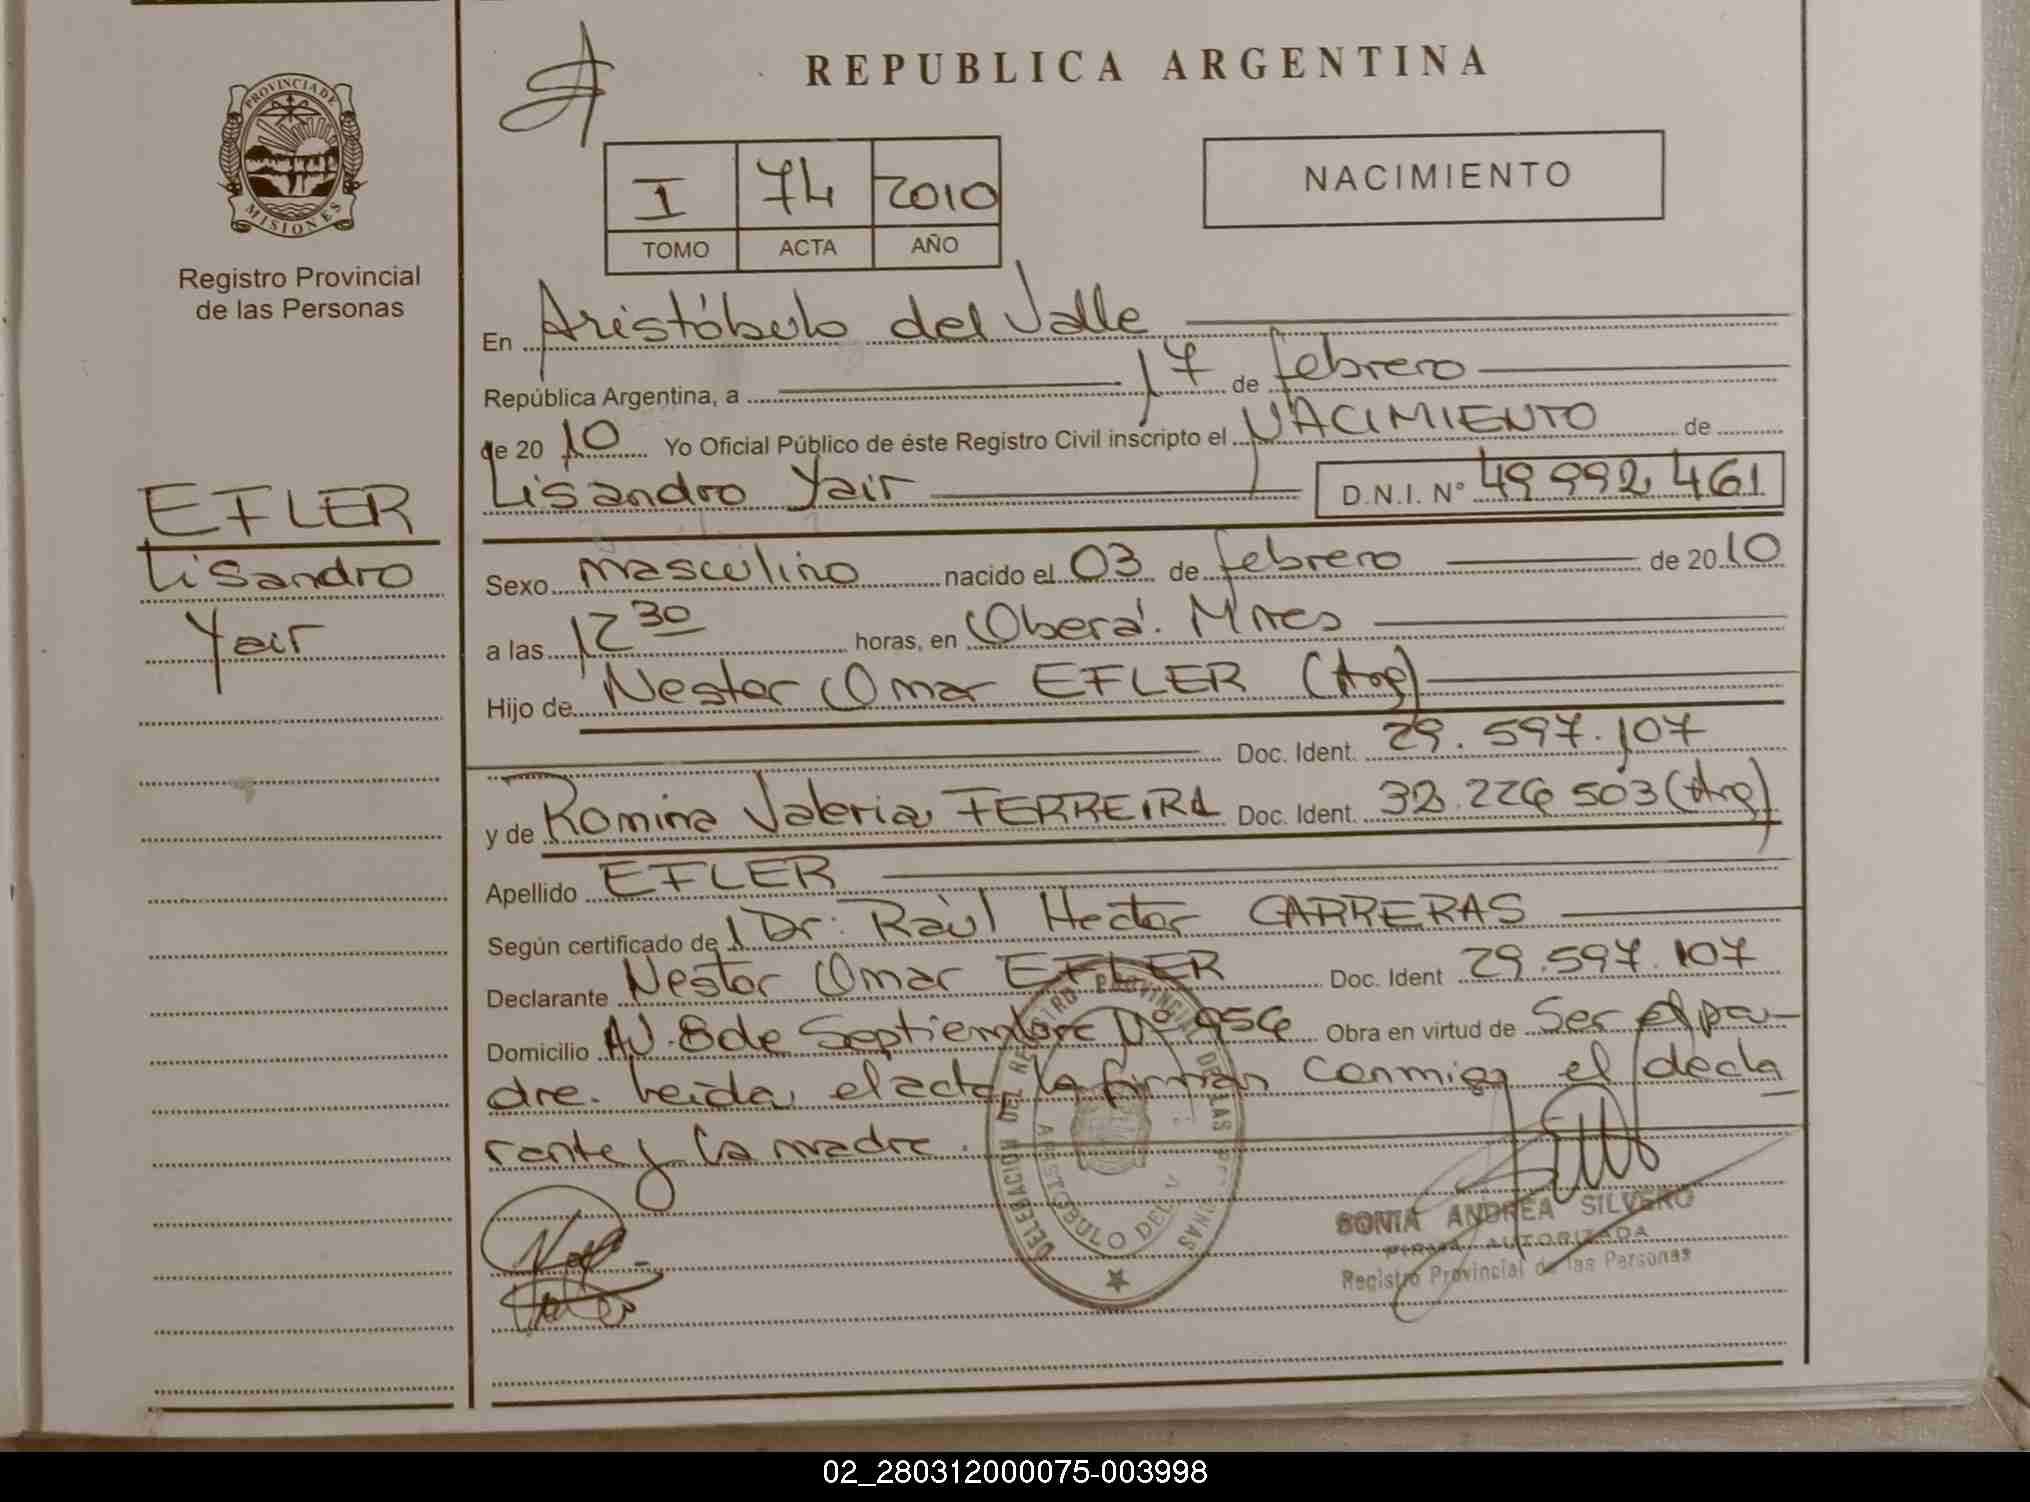 REPUBLICA ARGENTINA
PROVINCIA DE
MISIONES
Registro Provincial
de las Personas
I 74 2010
TOMO ACTA AÑO
NACIMIENTO
En Aristóbulo del Valle
República Argentina, a 17 de febrero
de 2010 Yo Oficial Público de éste Registro Civil inscripto el NACIMIENTO de
Lisandro Yair D.N.I. Nº 49 992 461
EFLER
Lisandro
Yair
Sexo masculino nacido el 03 de febrero de 2010
a las 12 30 horas, en Oberá. Mnes
Hijo de Nestor Omar EFLER (Arg)
Doc. Ident. 29.597.107
y de Romina Valeria FERREIRA Doc. Ident. 32.226 503 (Arg)
Apellido EFLER
Según certificado de Dr. Raúl Hector CARRERAS
Declarante Nestor Omar EFLER Doc. Ident 29.597.107
Domicilio AV. 8 de Septiembre Nº 956 Obra en virtud de Ser el pa-
dre. Leida el acta la firman conmigo el decla
rante y la madre.
DELEGACION DEL REGISTRO PROVINCIAL DE LAS PERSONAS
ARISTOBULO DEL V
SONIA ANDREA SILVERO
FIRMA AUTORIZADA
Registro Provincial de las Personas
02_280312000075-003998